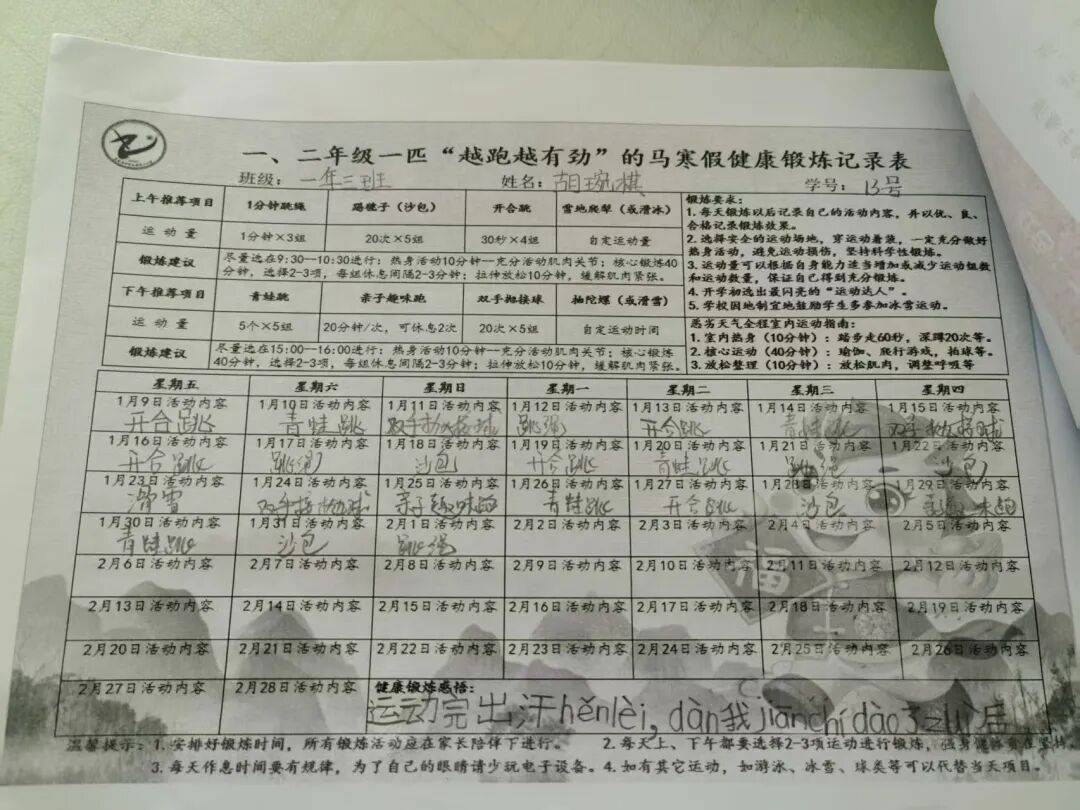 一、二年级一匹“越跑越有劲”的马寒假健康锻炼记录表
班级：一年三班 姓名：胡琬棋 学号：13号
上午推荐项目 1分钟跳绳 踢毽子（沙包） 开合跳 雪地爬犁（或滑冰）
运动量 1分钟×3组 20次×5组 30秒×4组 自定运动量
锻炼建议 尽量选在9:30—10:30进行：热身活动10分钟—充分活动肌肉关节；核心锻炼40
分钟，选择2-3项，每组休息间隔2-3分钟；拉伸放松10分钟，缓解肌肉紧张。
下午推荐项目 青蛙跳 亲子趣味跑 双手抛接球 抽陀螺（或滑雪）
运动量 5个×5组 20分钟/次，可休息2次 20次×5组 自定运动时间
锻炼建议 尽量选在15:00—16:00进行：热身活动10分钟—充分活动肌肉关节；核心锻炼
40分钟，选择2-3项，每组休息间隔2-3分钟；拉伸放松10分钟，缓解肌肉紧张。
锻炼要求：
1. 每天锻炼以后记录自己的活动内容，并以优、良、
合格记录锻炼效果。
2. 选择安全的运动场地，穿运动着装，一定充分做好
热身活动，避免运动损伤，坚持科学性锻炼。
3. 运动量可以根据自身能力适当增加或减少运动组数
和运动数量，保证自己得到充分锻炼。
4. 开学初选出最闪亮的“运动达人”。
5. 学校因地制宜地鼓励学生多参加冰雪运动。
恶劣天气全程室内运动指南：
1. 室内热身（10分钟）：踏步走60秒，深蹲20次等。
2. 核心运动（40分钟）：瑜伽、爬行游戏，拍球等。
3. 放松整理（10分钟）：放松肌肉，调整呼吸等
星期五 星期六 星期日 星期一 星期二 星期三 星期四
1月9日活动内容 1月10日活动内容 1月11日活动内容 1月12日活动内容 1月13日活动内容 1月14日活动内容 1月15日活动内容
开合跳 青蛙跳 双手抛接球 跳绳 开合跳 青蛙跳 双手抛接球
1月16日活动内容 1月17日活动内容 1月18日活动内容 1月19日活动内容 1月20日活动内容 1月21日活动内容 1月22日活动内容
开合跳 跳绳 沙包 开合跳 青蛙跳 跳绳 沙包
1月23日活动内容 1月24日活动内容 1月25日活动内容 1月26日活动内容 1月27日活动内容 1月28日活动内容 1月29日活动内容
滑雪 双手接抛球 亲子趣味跑 青蛙跳 开合跳 沙包 味跑
1月30日活动内容 1月31日活动内容 2月1日活动内容 2月2日活动内容 2月3日活动内容 2月4日活动内容 2月5日活动内容
青蛙跳 沙包 跳绳
2月6日活动内容 2月7日活动内容 2月8日活动内容 2月9日活动内容 2月10日活动内容 2月11日活动内容 2月12日活动内容
福
2月13日活动内容 2月14日活动内容 2月15日活动内容 2月16日活动内容 2月17日活动内容 2月18日活动内容 2月19日活动内容
2月20日活动内容 2月21日活动内容 2月22日活动内容 2月23日活动内容 2月24日活动内容 2月25日活动内容 2月26日活动内容
2月27日活动内容 2月28日活动内容 健康锻炼感悟：
运动完出汗hěnlèi，dàn我jiānchídào了zuì后
温馨提示：1. 安排好锻炼时间，所有锻炼活动应在家长陪伴下进行。 2. 每天上、下午都要选择2-3项运动进行锻炼，强身健体贵在坚持。
3. 每天作息时间要有规律，为了自己的眼睛请少玩电子设备。 4. 如有其它运动，如游泳、冰雪、球类等可以代替当天项目。